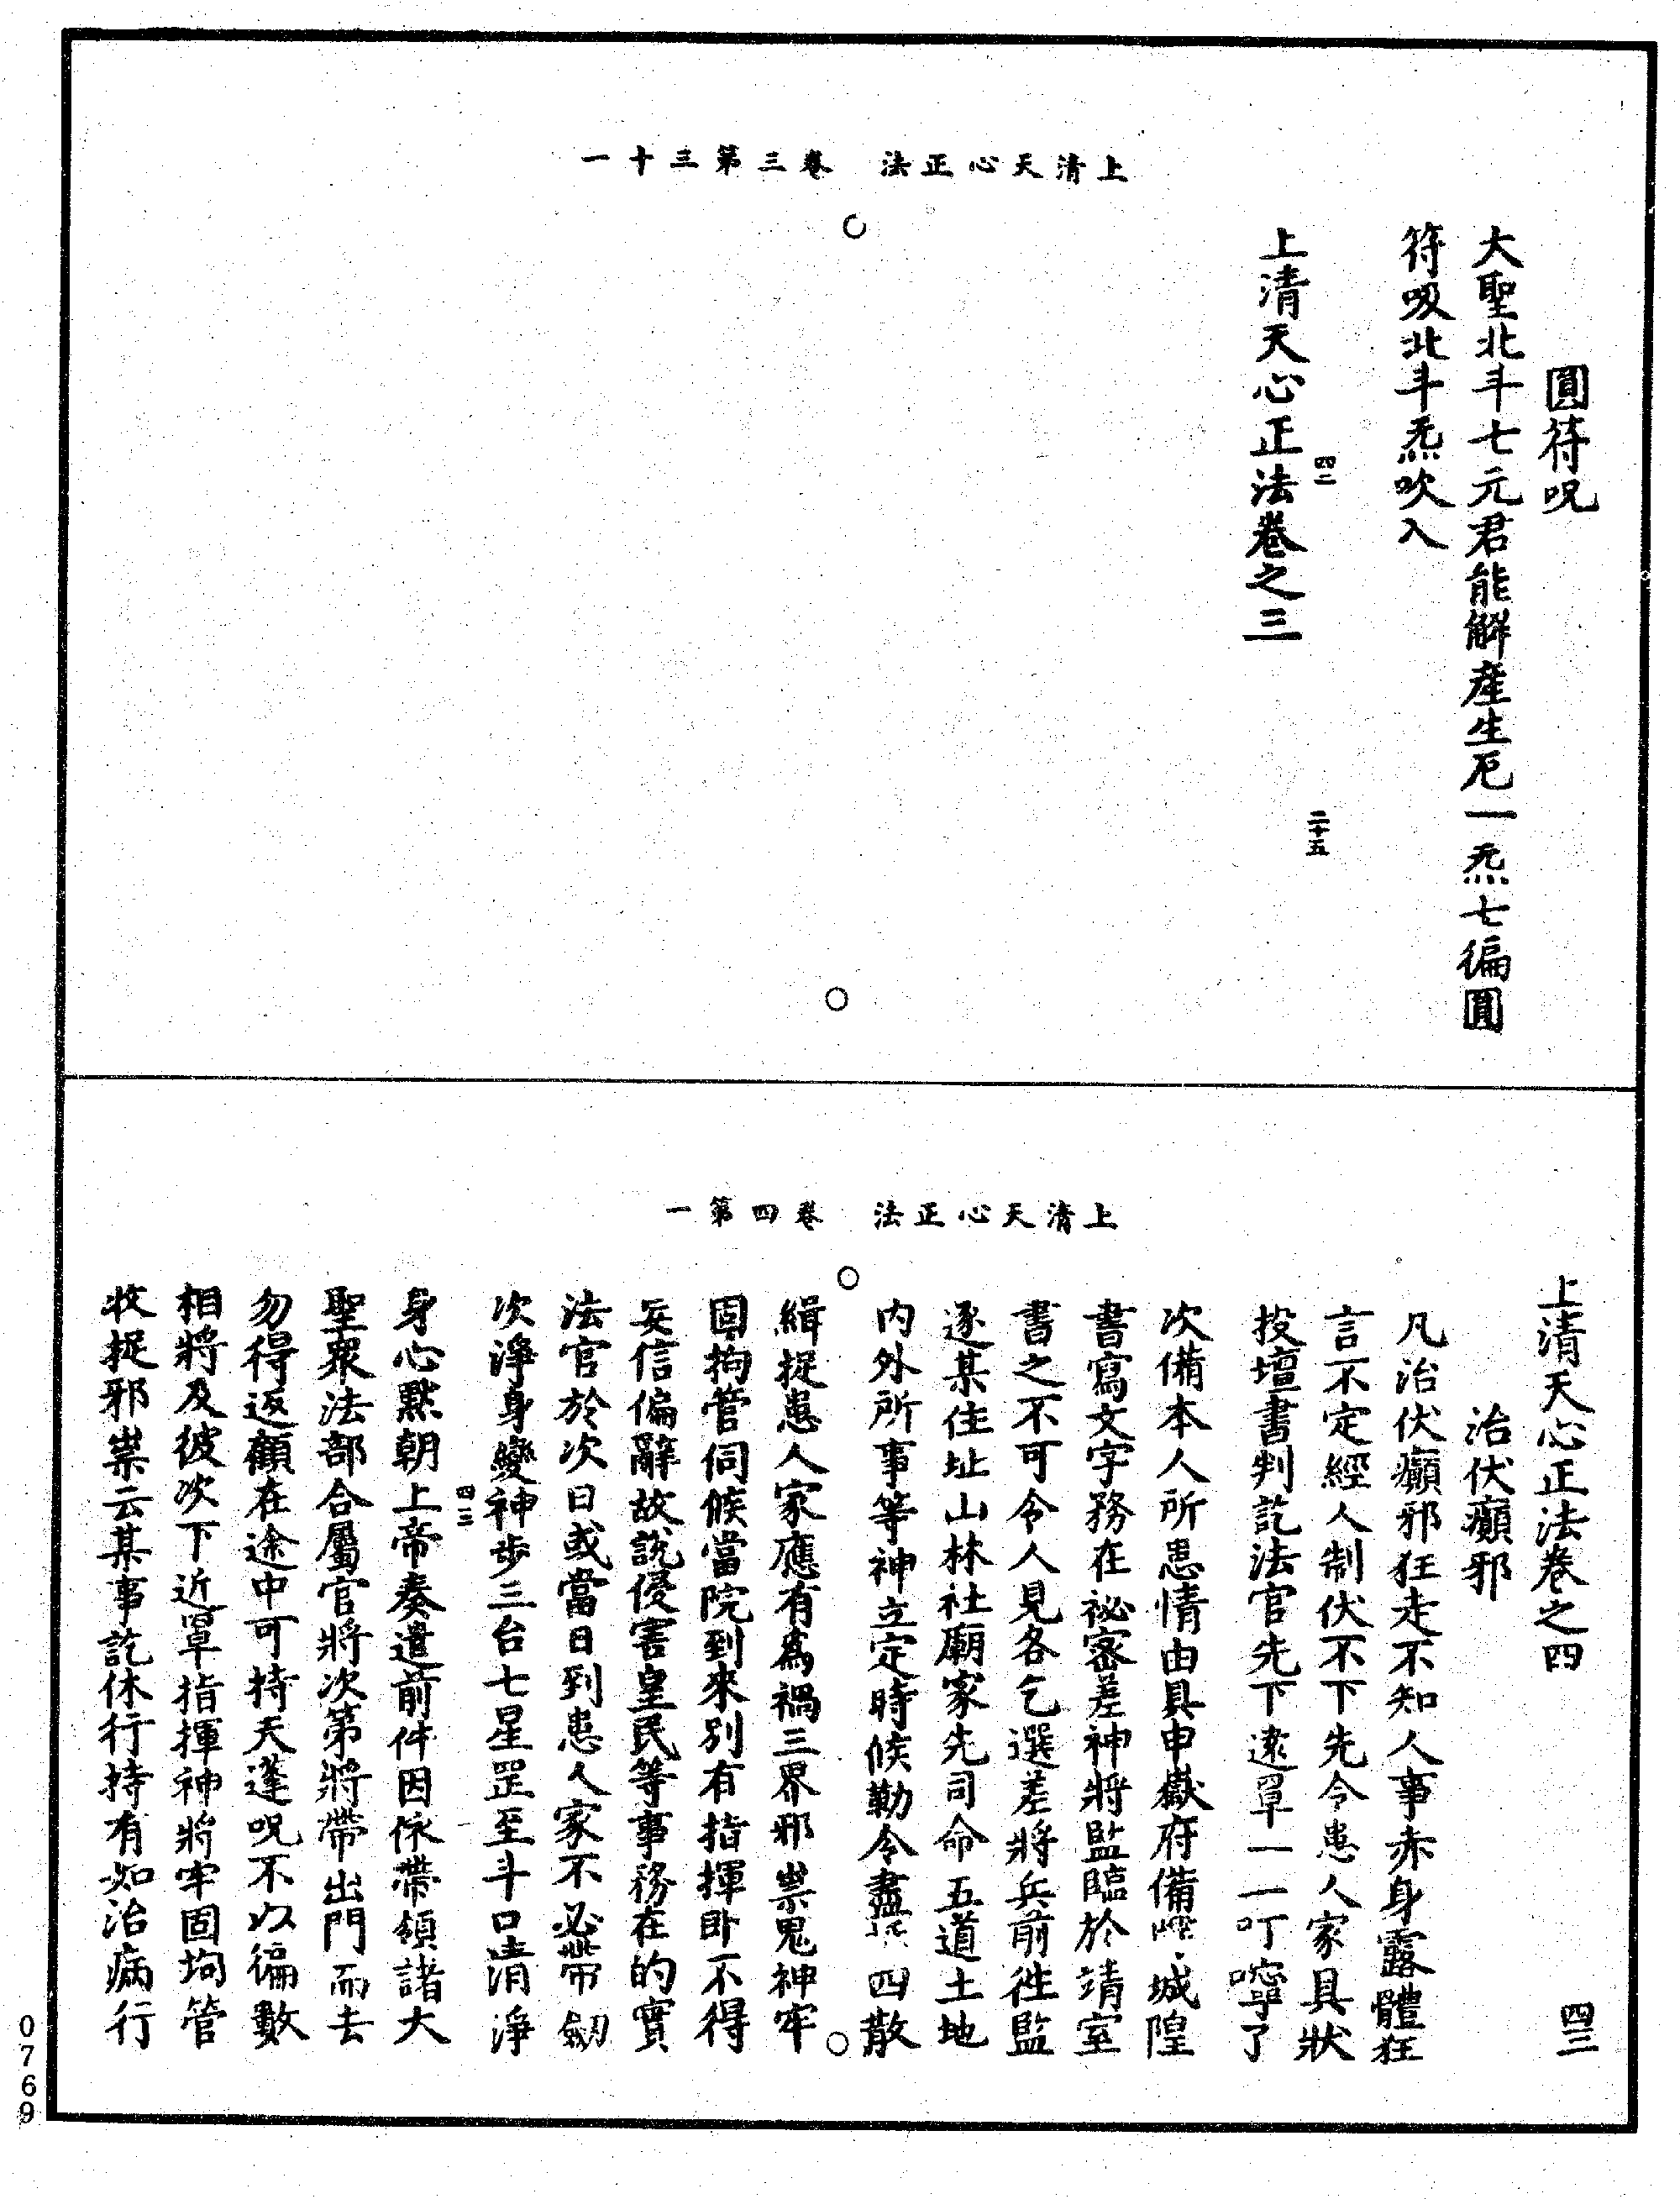 上清天心正法　卷三第三十一
圓符呪
大聖北斗七元君能解產生厄一炁七徧圓
符吸北斗炁吹入
四二
二十五
上清天心正法卷之三
上清天心正法　卷四第一
上清天心正法卷之四
四三
治伏癲邪
凡治伏癲邪狂走不知人事赤身露體狂
言不定經人制伏不下先令患人家具狀
投壇書判訖法官先下逮罩一一叮嚀了
次備本人所患情由具申嶽府備城隍
書寫文字務在祕密差神將監臨於靖室
書之不可令人見各乞選差將兵前徃監
逐某住址山林社廟家先司命五道土地
内外所事等神立定時候勒令盡四散
緝捉患人家應有為禍三界邪祟鬼神牢
固拘管伺候當院到來别有指揮卽不得
妄信偏辭故說侵害皇民等事務在的實
法官於次日或當日到患人家不必帶劒
次淨身變神步三台七星罡至斗口清淨
四三
身心默朝上帝奏遣前件因依帶領諸大
聖眾法部合屬官將次第將帶出門而去
勿得返顧在途中可持天蓬呪不以徧數
相將及彼次下近罩指揮神將牢固拘管
收捉邪祟云某事訖休行持有知治病行
0769